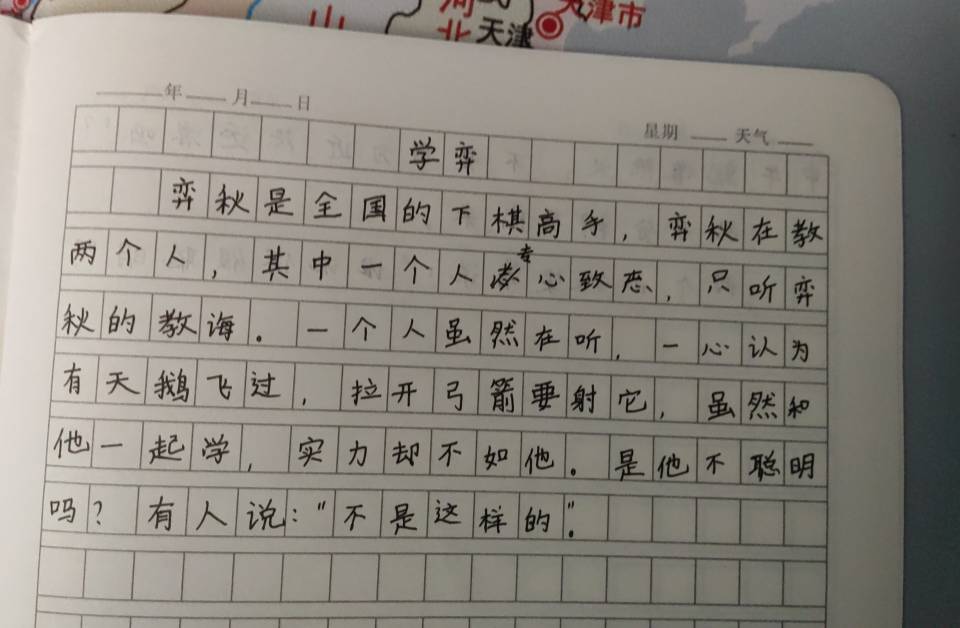 天津市
天津
年 月 日
星期 天气
学弈
弈秋是全国的下棋高手，弈秋在教
两个人，其中一个人专心致志，只听弈
秋的教诲。一个人虽然在听，一心认为
有天鹅飞过，拉开弓箭要射它，虽然和
他一起学，实力却不如他。是他不聪明
吗？有人说：“不是这样的”。